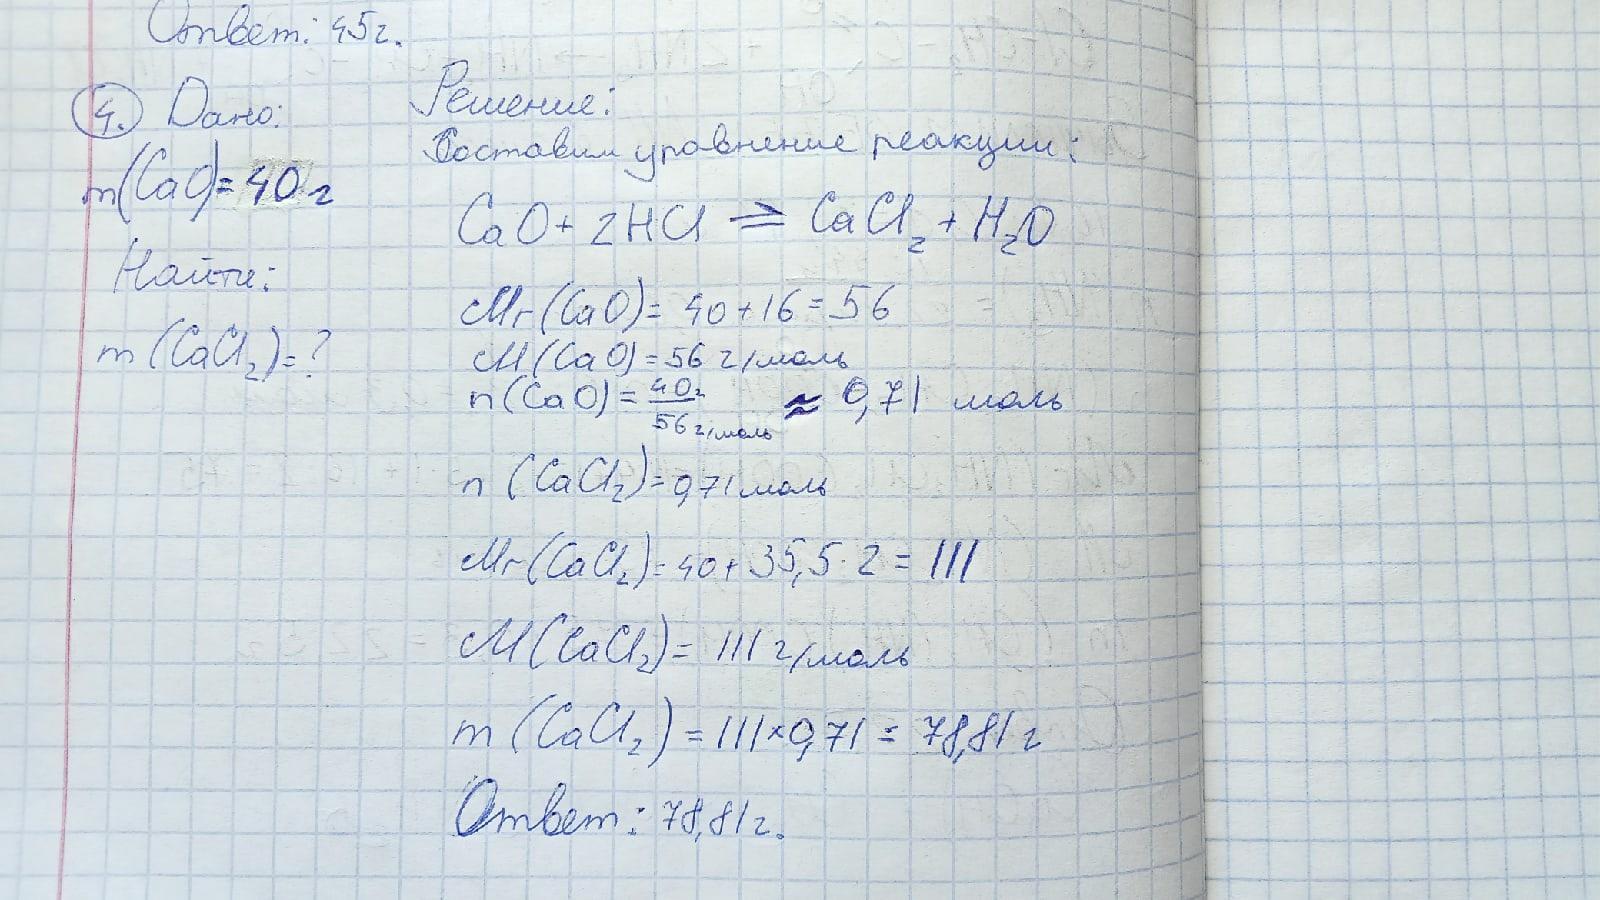 Ответ: 45г.
4. Дано:
m(CaO)= 40 г
Найти:
m(CaCl₂)=?
Решение:
Составим уравнение реакции:
CaO + 2HCl ⇌ CaCl₂ + H₂O
Mr(CaO)= 40+16=56
M(CaO)=56 г/моль
n(CaO)= 40г/56г/моль ≈ 0,71 моль
n(CaCl₂)=0,71моль
Mr(CaCl₂)=40+35,5·2=111
M(CaCl₂)= 111 г/моль
m(CaCl₂)=111×0,71=78,81 г
Ответ: 78,81г.